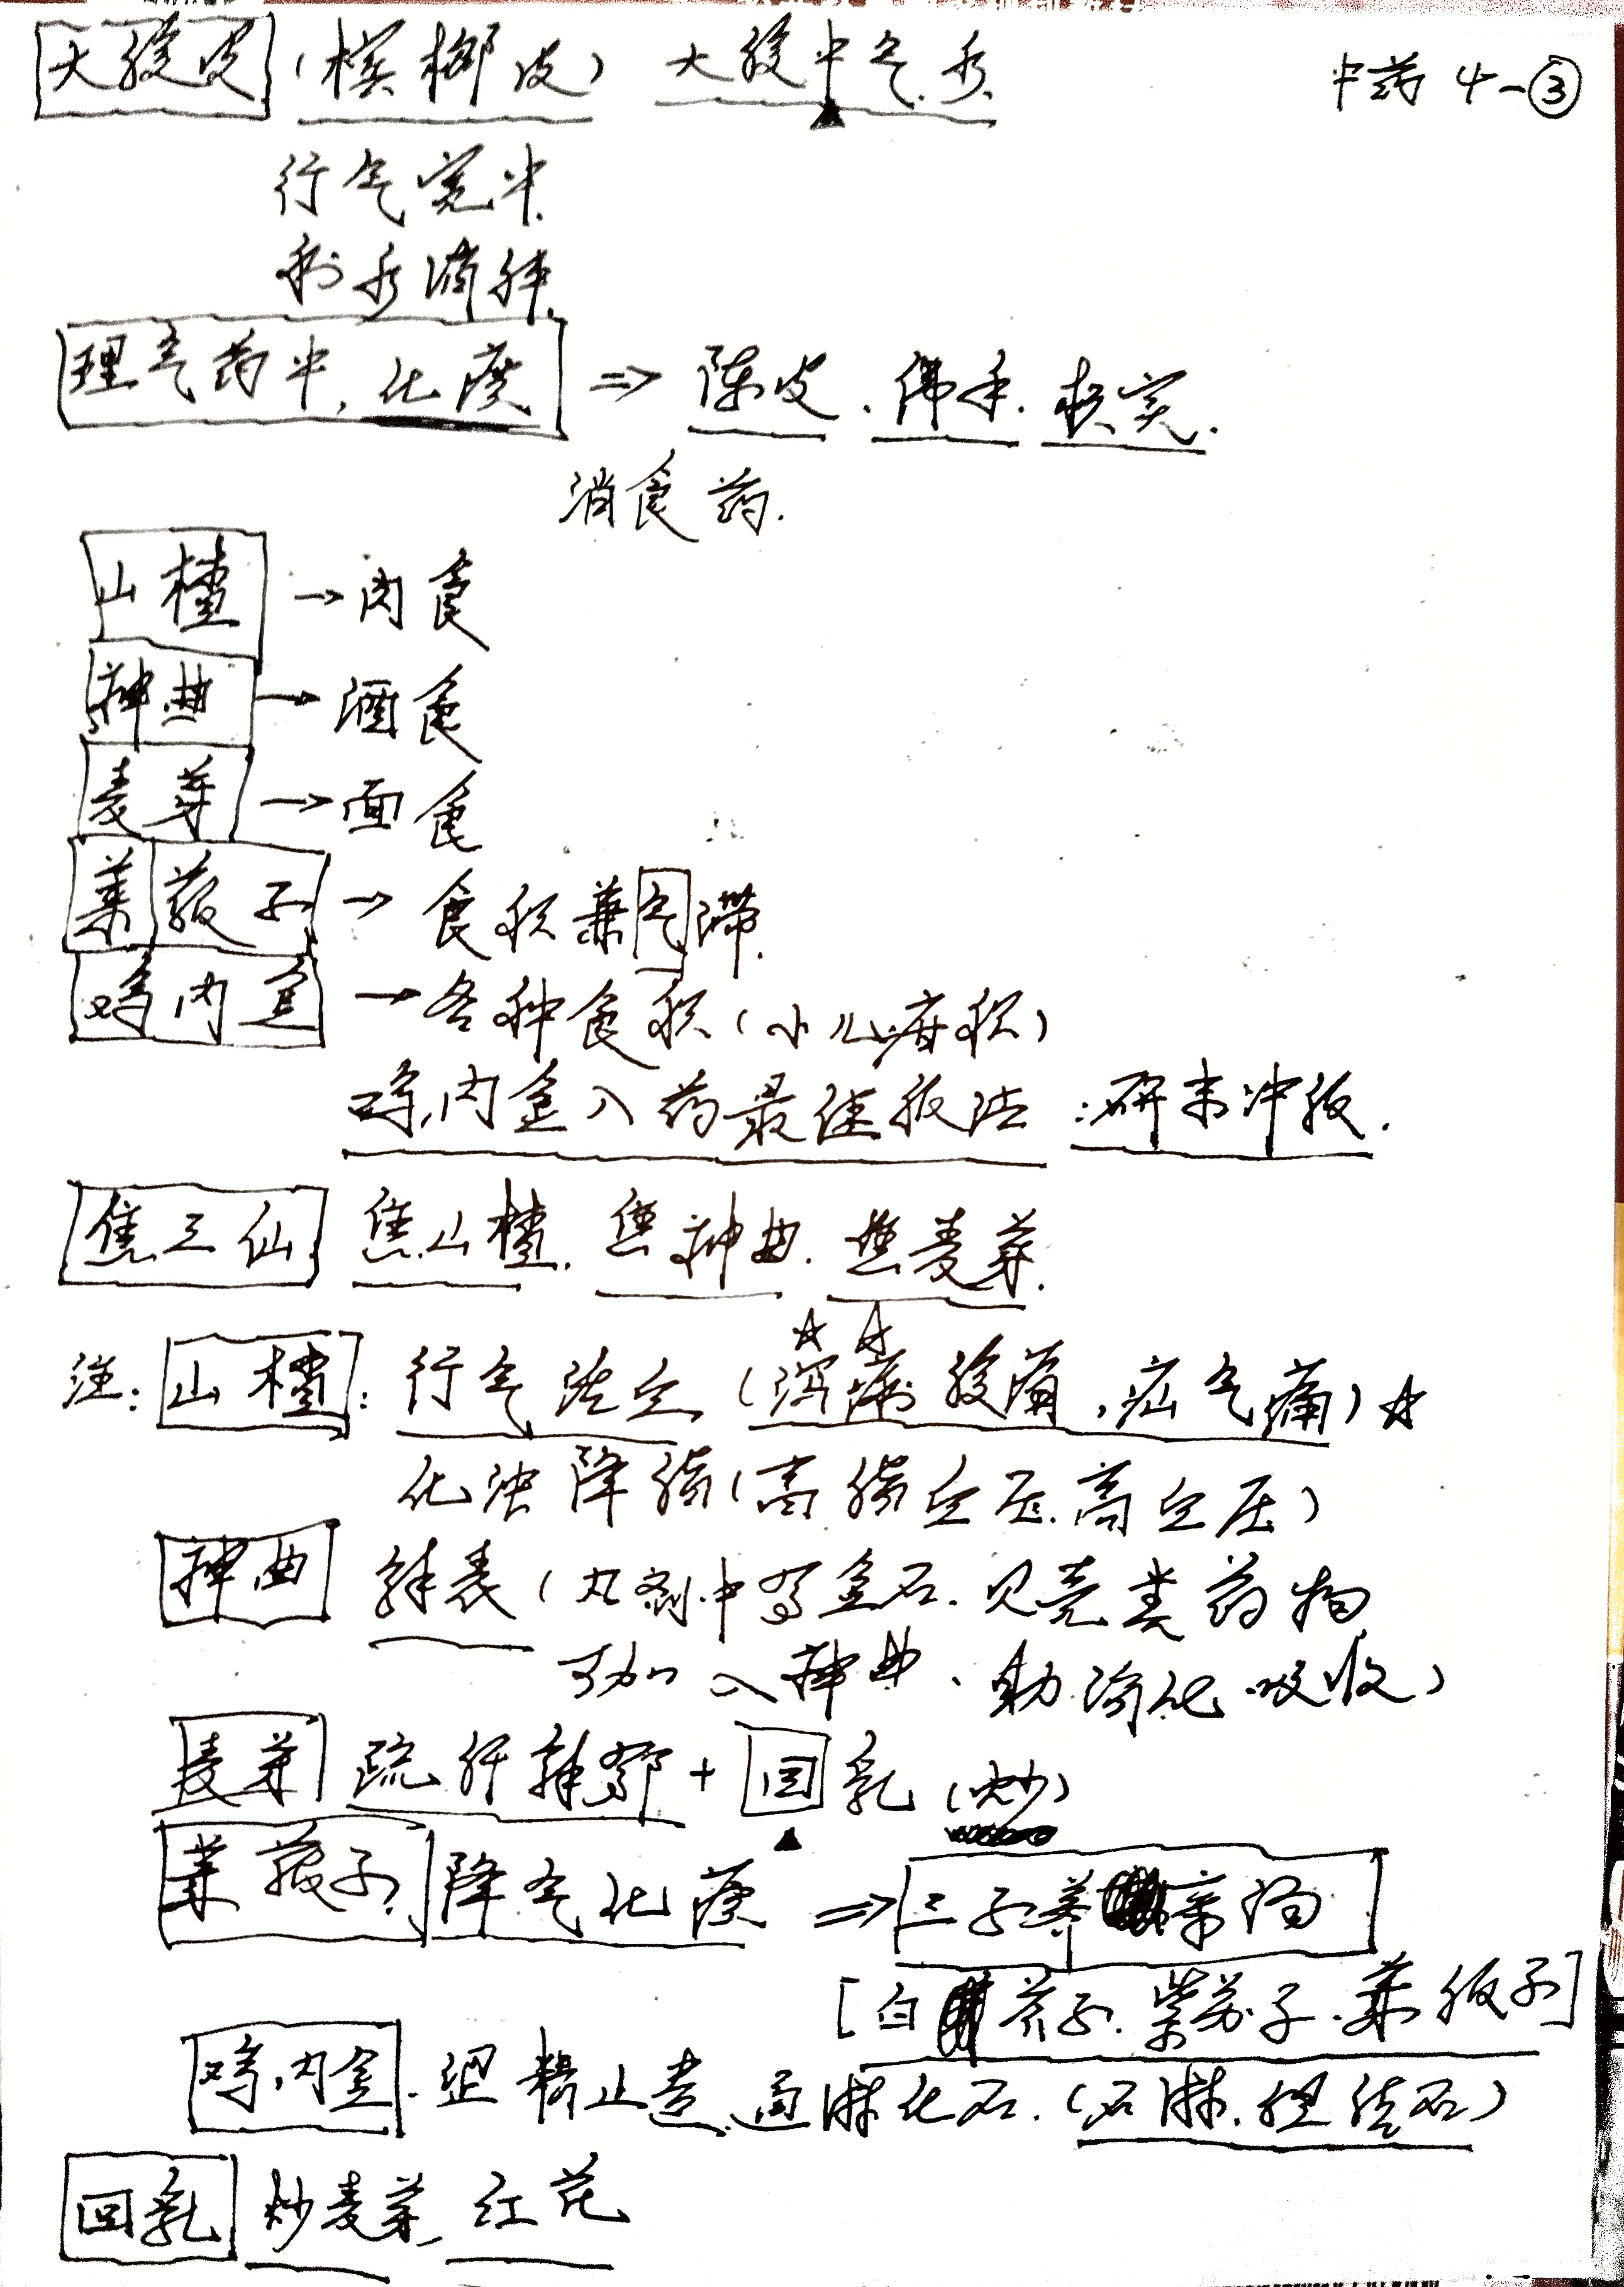 大腹皮(槟榔皮) 大腹中气水 中药 4-③
行气宽中.
利水消肿.
理气药中,化痰 => 陈皮、佛手.枳实.
消食药.
山楂 →肉食
神曲→酒食
麦芽→面食
莱菔子→食积兼气滞.
鸡内金→各种食积(小儿疳积)
鸡内金入药最佳服法:研末冲服.
焦三仙 焦山楂.焦神曲.焦麦芽.
注:山楂:行气活血(泻痢腹痛,疝气痛)☆
化浊降脂(高脂血压.高血压)
神曲 解表(丸剂中有金石.贝壳类药物
可加入神曲、助消化吸收)
麦芽 疏肝解郁+回乳(炒)
莱菔子 降气化痰 =>三子养亲汤
[白芥子.紫苏子.莱服子]
鸡内金.涩精止遗.通淋化石.(石淋.胆结石)
回乳 炒麦芽、红花